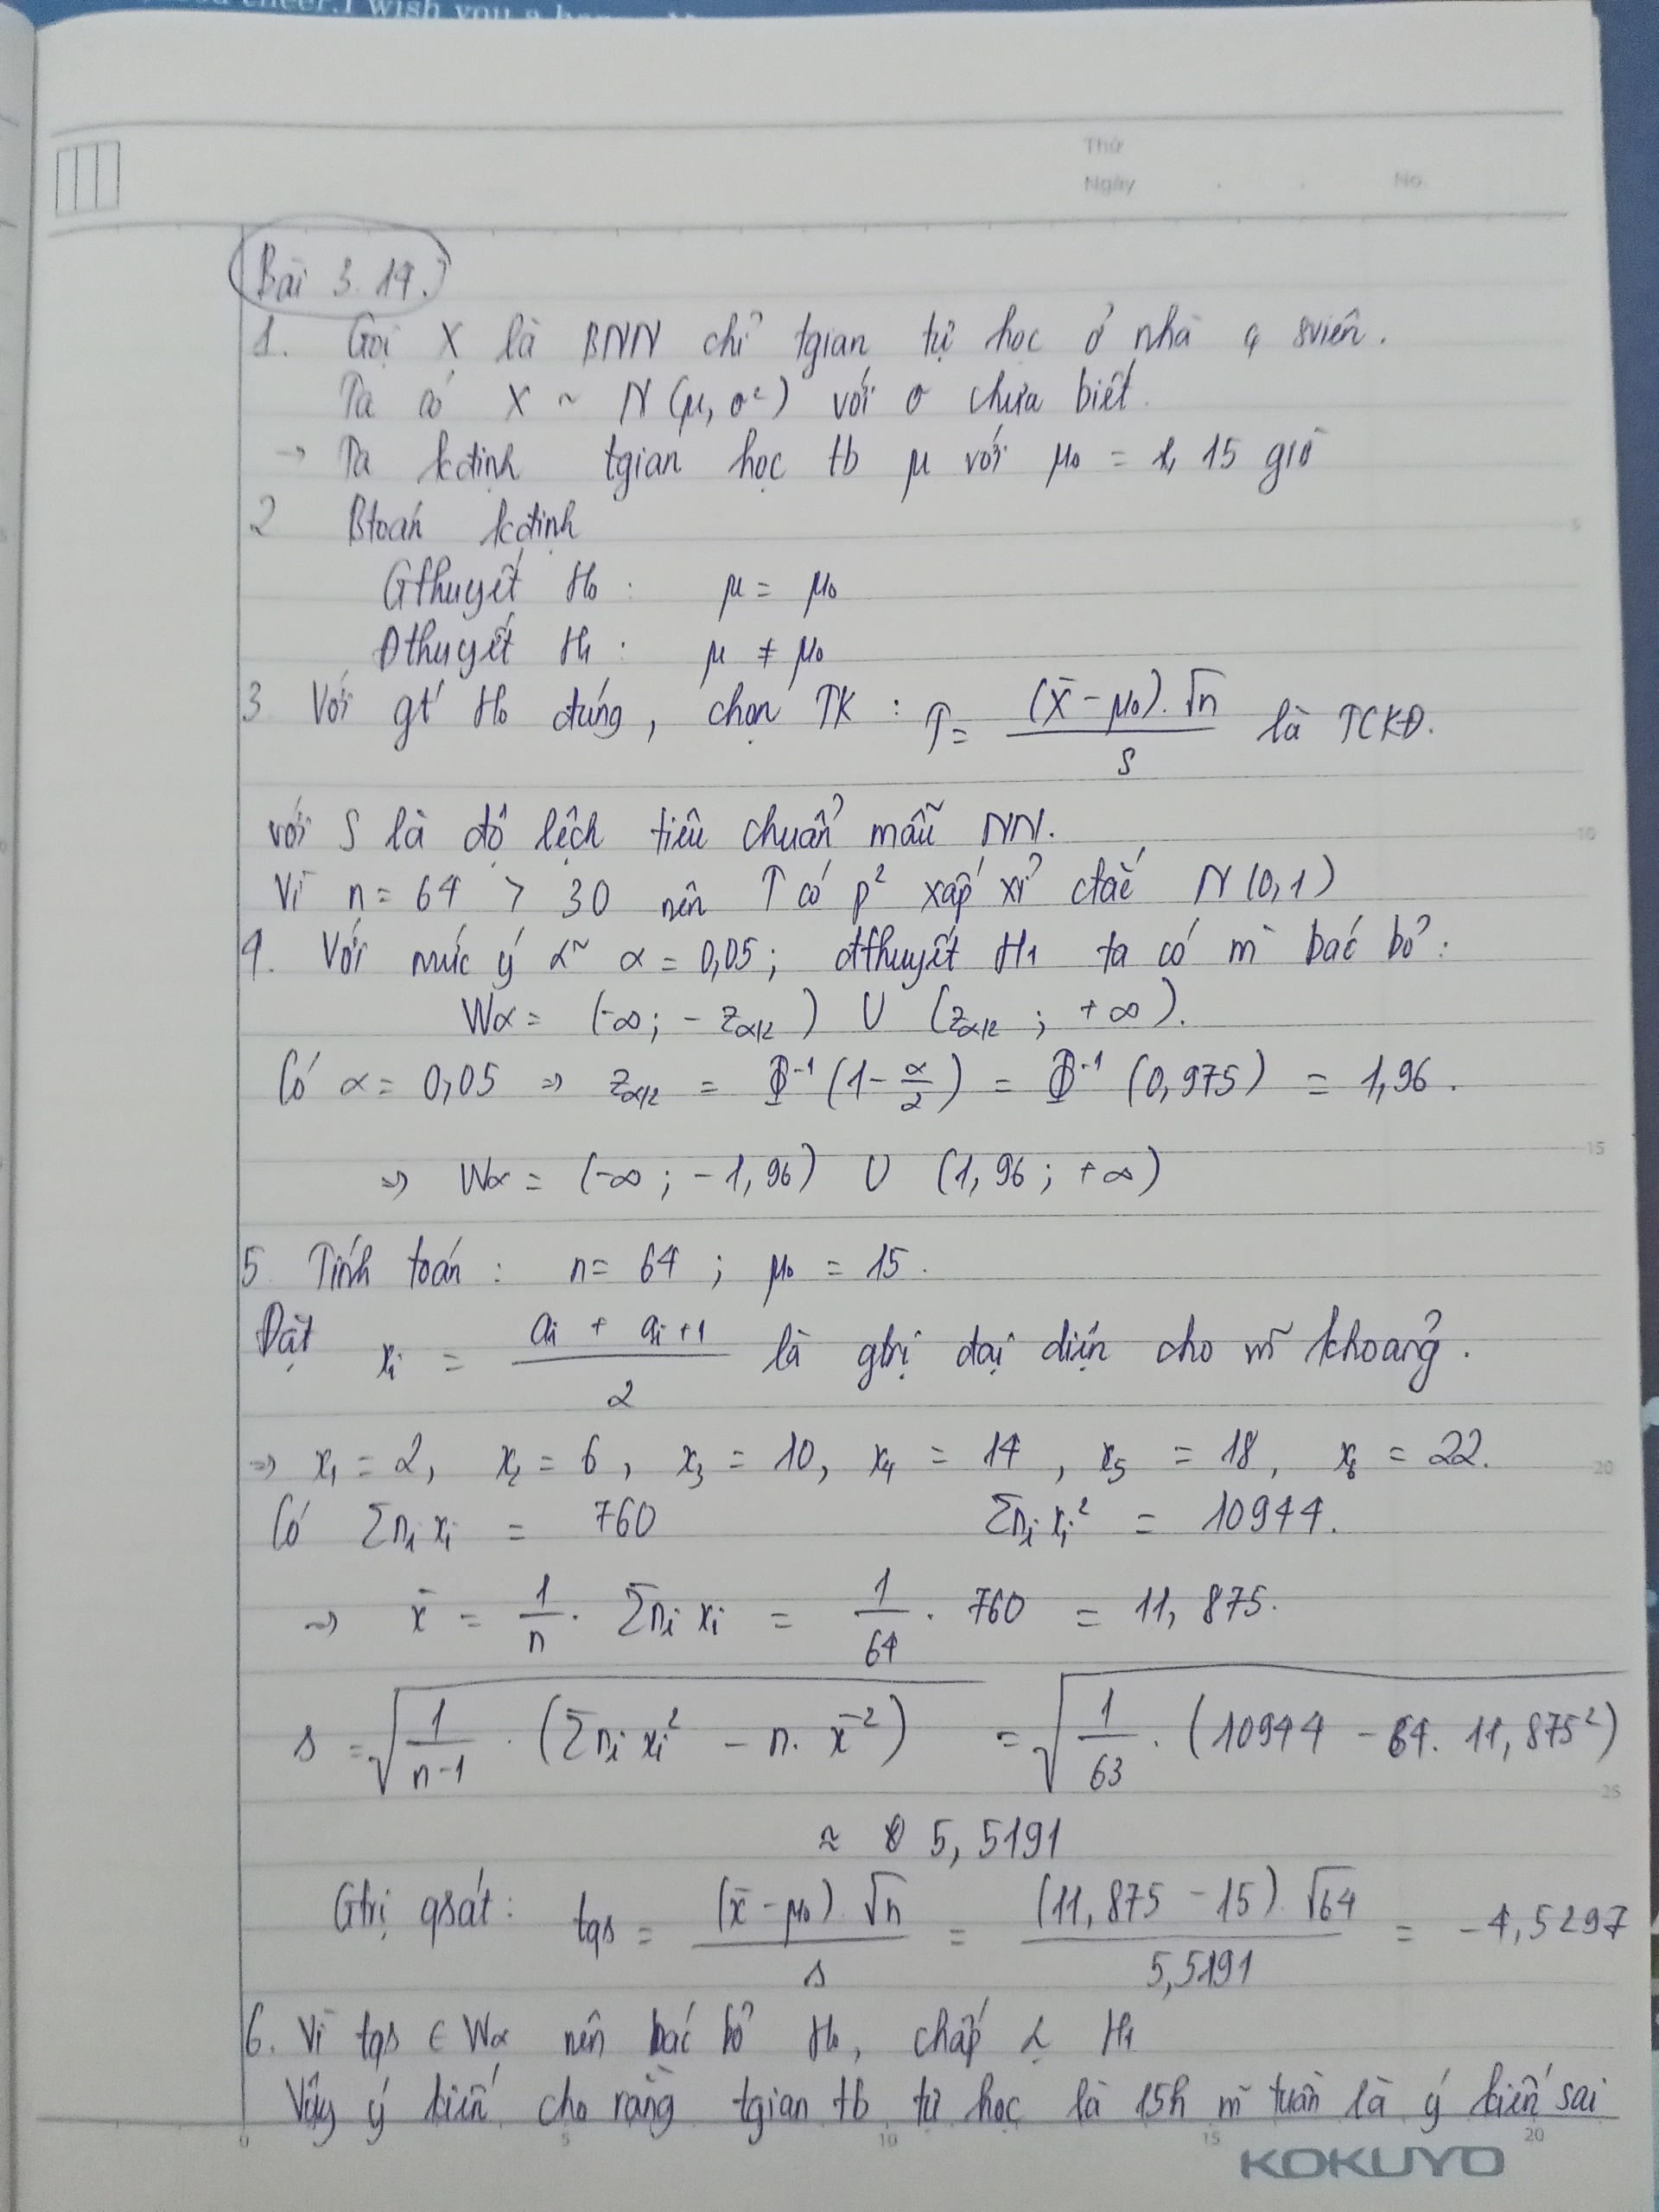 cheer. I wish you a
Thứ
Ngày . . No.
Bài 3.14.
1. Gọi X là BNN chỉ tgian tự học ở nhà q svien.
Ta có X ~ N(μ, σ²) với σ chưa biết.
→ Ta kđịnh tgian học tb μ với μ₀ = 15 giờ
2 Btoán kđịnh
Gthuyết H₀ : μ = μ₀
Đthuyết H₁ : μ ≠ μ₀
3 Với gt H₀ đúng, chọn TK : T = (X̄ - μ₀).√n / S là TCKĐ.
với S là độ lệch tiêu chuẩn mẫu NN.
Vì n = 64 > 30 nên T có p² xấp xỉ ctắc N(0,1)
4. Với mức ý α = 0,05; đthuyết H₁ ta có m bác bỏ:
Wα = (-∞; - z_α/2) ∪ (z_α/2 ; +∞).
Có α = 0,05 ⇒ z_α/2 = Φ⁻¹(1 - α/2) = Φ⁻¹(0,975) = 1,96.
⇒ Wα = (-∞; -1,96) ∪ (1,96; +∞)
5 Tính toán: n = 64 ; μ₀ = 15.
Đặt xᵢ = (aᵢ + aᵢ+1) / 2 là gtrị đại diện cho m̃ khoảng.
⇒ x₁ = 2, x₂ = 6, x₃ = 10, x₄ = 14, x₅ = 18, x₆ = 22.
Có Σnᵢxᵢ = 760 Σnᵢxᵢ² = 10944.
⇒ x̄ = 1/n . Σnᵢxᵢ = 1/64 . 760 = 11,875.
s = √(1/(n-1) . (Σnᵢxᵢ² - n. x̄²)) = √(1/63 . (10944 - 64. 11,875²)
≈ 5,5191
Gtrị qsát: tqs = (x̄ - μ₀).√n / s = (11,875 - 15).√64 / 5,5191 = -4,5297
6. Vì tqs ∈ Wα nên bác bỏ H₀, chấp H₁
Vậy ý kiến cho rằng tgian tb tự học là 15h m̃ tuần là ý kiến sai
5
10
15
20
25
0 5 10 15 20
KOKUYO